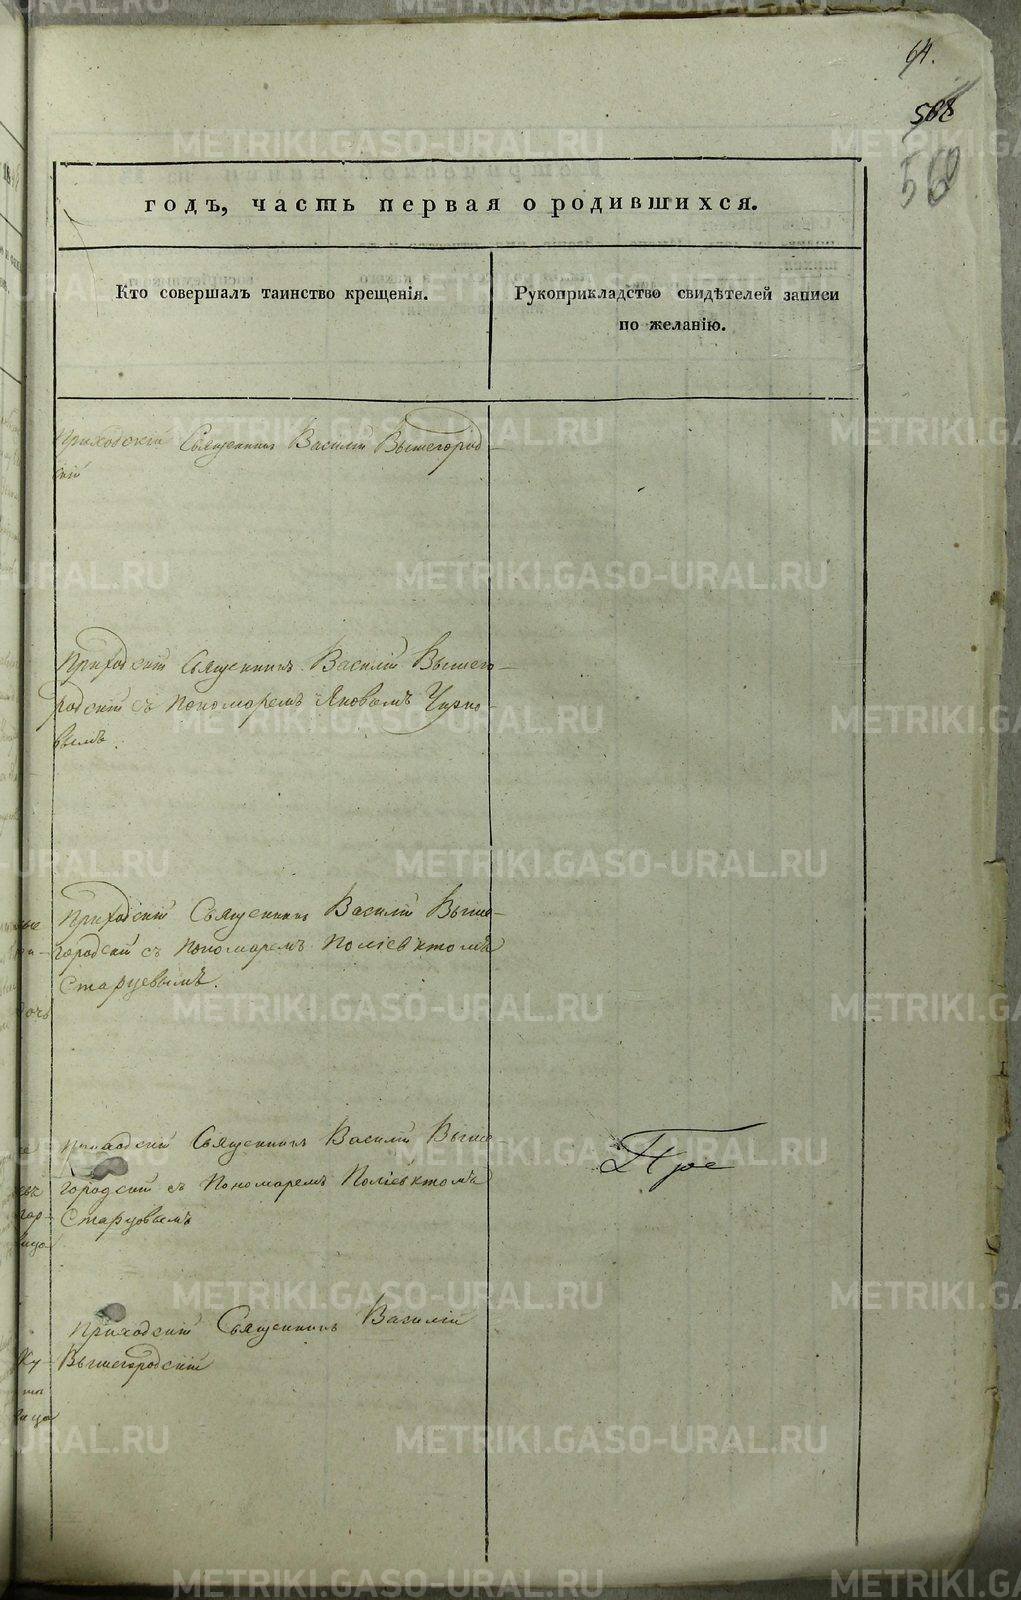 64.
560
годъ, часть первая о родившихся.
Кто совершалъ таинство крещенія.
Рукоприкладство свидѣтелей записи
по желанію.
Приходскій Священникъ Василій Вышегород-
скій
Приходскій Священникъ Василій Вышего-
родскій съ Пономаремъ Яковомъ
вымъ.
Приходскій Священникъ Василій Выше-
городскій съ Пономаремъ Поліевктомъ
Старцевымъ.
Приходскій Священникъ Василій Выше-
городскій съ Пономаремъ Поліевктомъ
Старцовымъ
Приходскій Священникъ Василій
Вышегородскій
METRIKI.GASO-URAL.RU